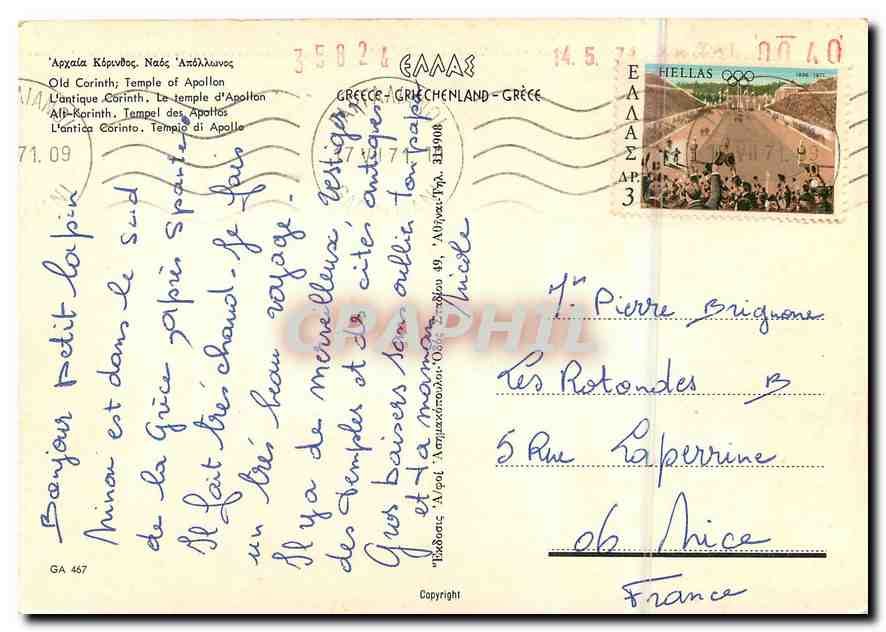 Ἀρχαία Κόρινθος. Ναός Ἀπόλλωνος
Old Corinth; Temple of Apollon
L'antique Corinth. Le temple d'Apollon
Alt-Korinth. Tempel des Apollos
L'antica Corinto. Tempio di Apollo
35824
14.5.71
0040
ΕΛΛΑΣ
GREECE - GRIECHENLAND - GRÈCE
71.09
VII 71
VII 71
ΕΛΛΑΣ ΔΡ. 3
HELLAS
1896 - 1971
Bonjour petit lapin
Ninon est dans le sud
de la Grèce après
Il fait très chaud. Je fais
un très beau voyage.
Il y a de merveilleux vestiges,
des temples et des cités antiques
Gros baisers sans oublier ton papa
et ta maman
Nicole
Ἔκδοσις Ἀ/φοί Ἀσημακόπουλοι Ὁδός Σταδίου 49, Ἀθῆναι-Τηλ. 314908
Pierre Brignone
Les Rotondes B
5 Rue Laperrine
06 Nice
France
GA 467
Copyright
CPAPHIL